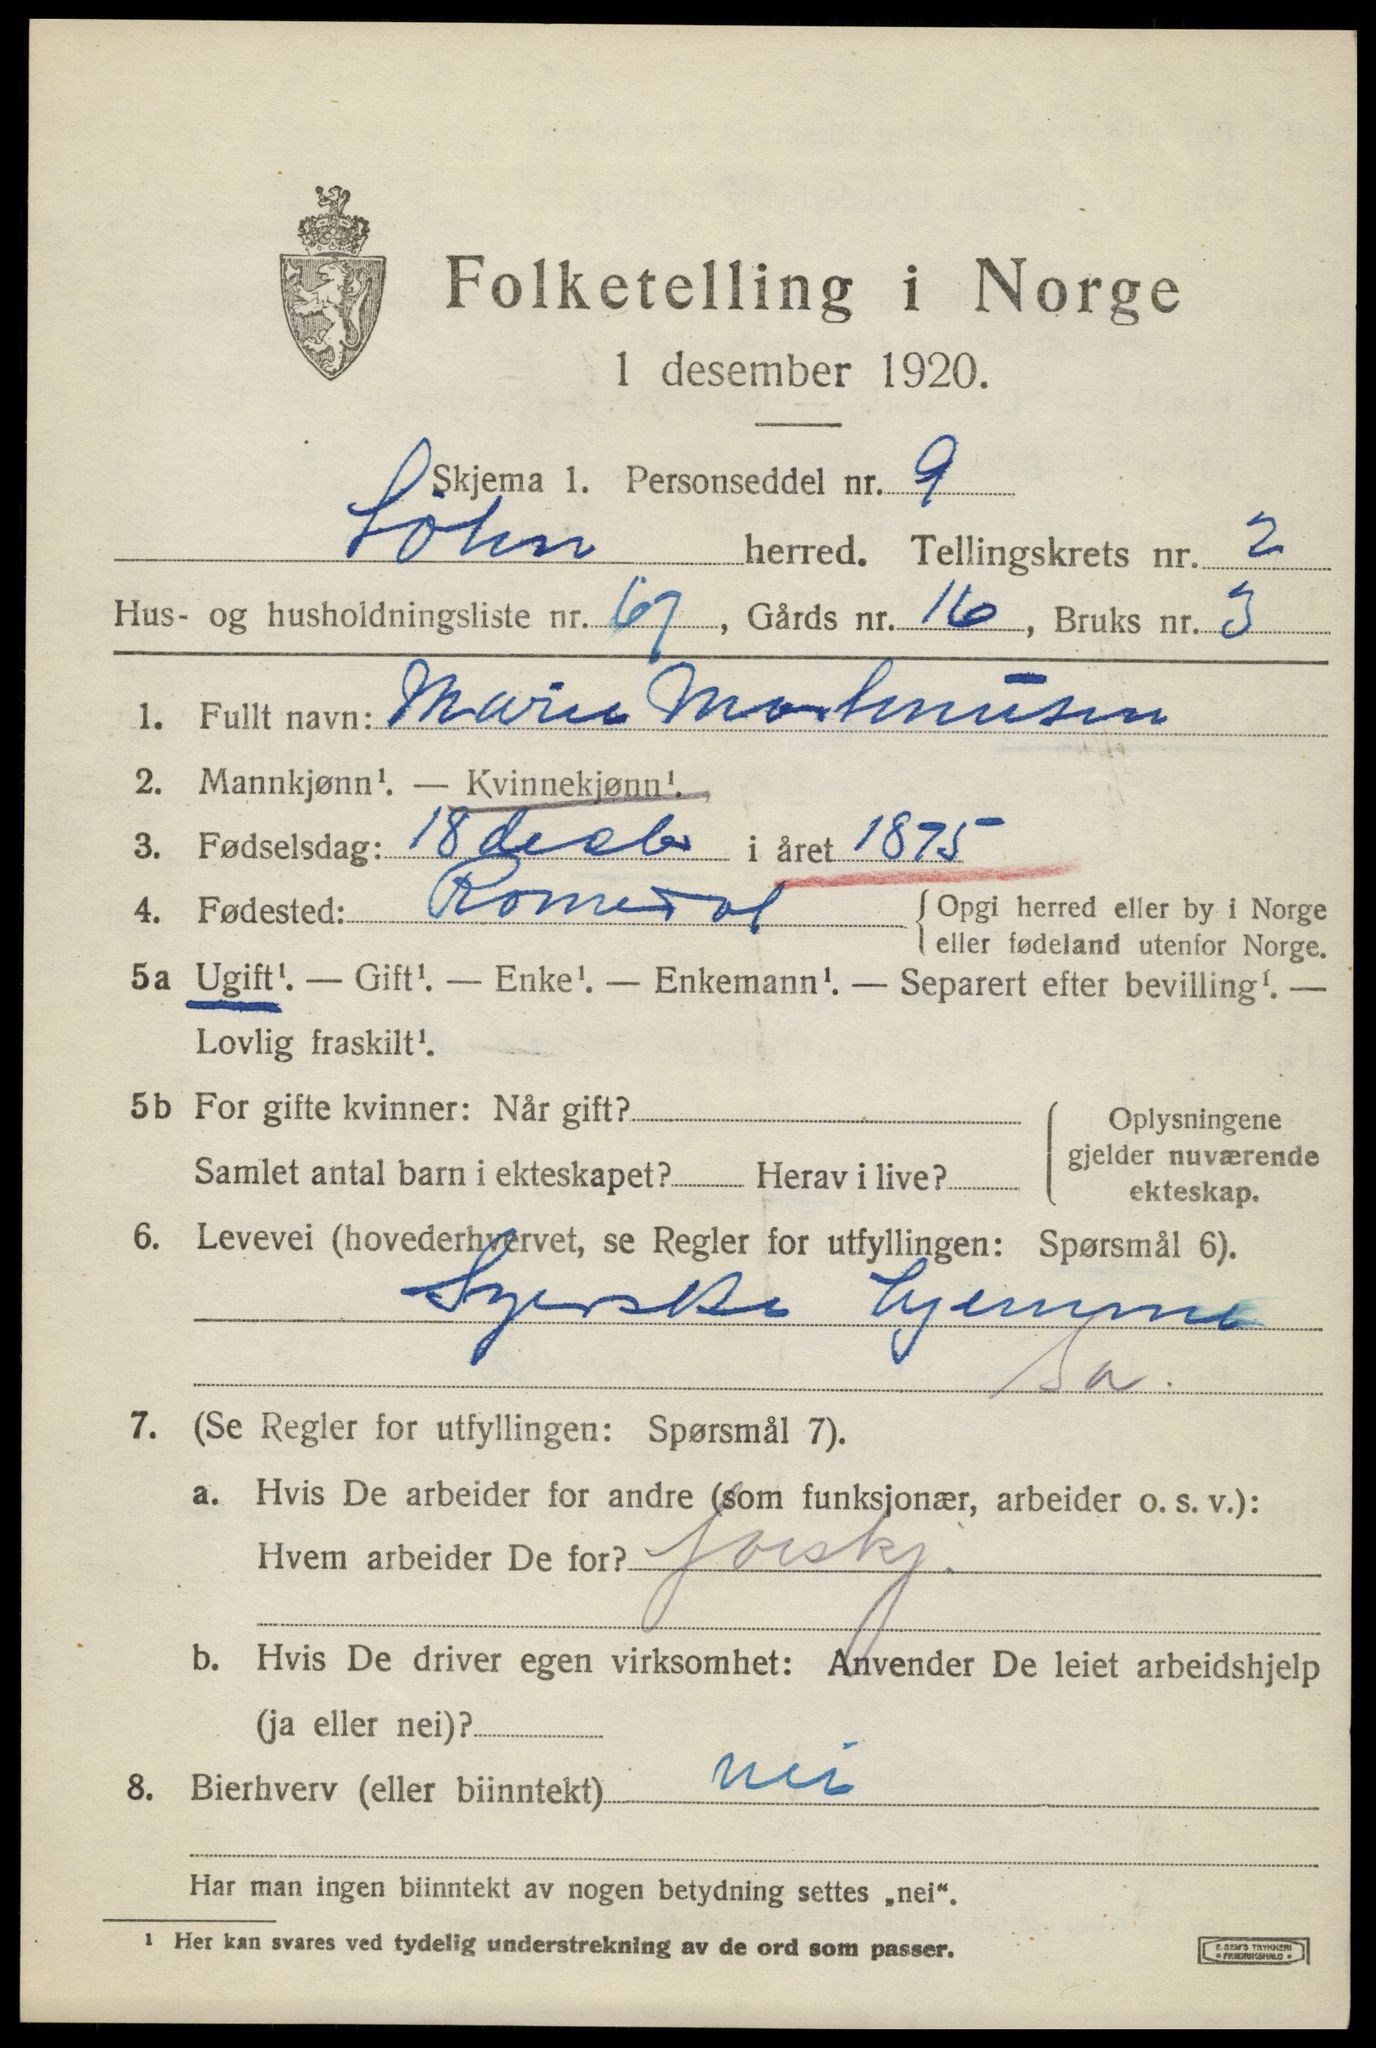 Folketelling i Norge
1 desember 1920.
Skjema 1. Personseddel nr. 9
Löten herred. Tellingskrets nr. 2
Hus- og husholdningsliste nr. 67, Gårds nr. 16, Bruks nr. 3
1. Fullt navn: Marie Martinusen
2. Mannkjønn¹. — Kvinnekjønn¹.
3. Fødselsdag: 18 decbr i året 1875
4. Fødested: Romedal {Opgi herred eller by i Norge
eller fødeland utenfor Norge.
5a Ugift¹. — Gift¹. — Enke¹. — Enkemann¹. — Separert efter bevilling¹. —
Lovlig fraskilt¹.
5b For gifte kvinner: Når gift?
Oplysningene
gjelder nuværende
ekteskap.
Samlet antal barn i ekteskapet? Herav i live?
6. Levevei (hovederhvervet, se Regler for utfyllingen: Spørsmål 6).
Syerske hjemme
Sa.
7. (Se Regler for utfyllingen: Spørsmål 7).
a. Hvis De arbeider for andre (som funksjonær, arbeider o. s. v.):
Hvem arbeider De for? forskj.
b. Hvis De driver egen virksomhet: Anvender De leiet arbeidshjelp
(ja eller nei)?
8. Bierhverv (eller biinntekt) nei
Har man ingen biinntekt av nogen betydning settes „nei“.
¹ Her kan svares ved tydelig understrekning av de ord som passer.
E. SEM'S TRYKKERI
• FREDRIKSHALD •